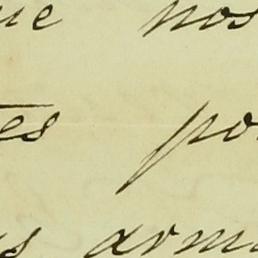 ue nos
tes po
us arma